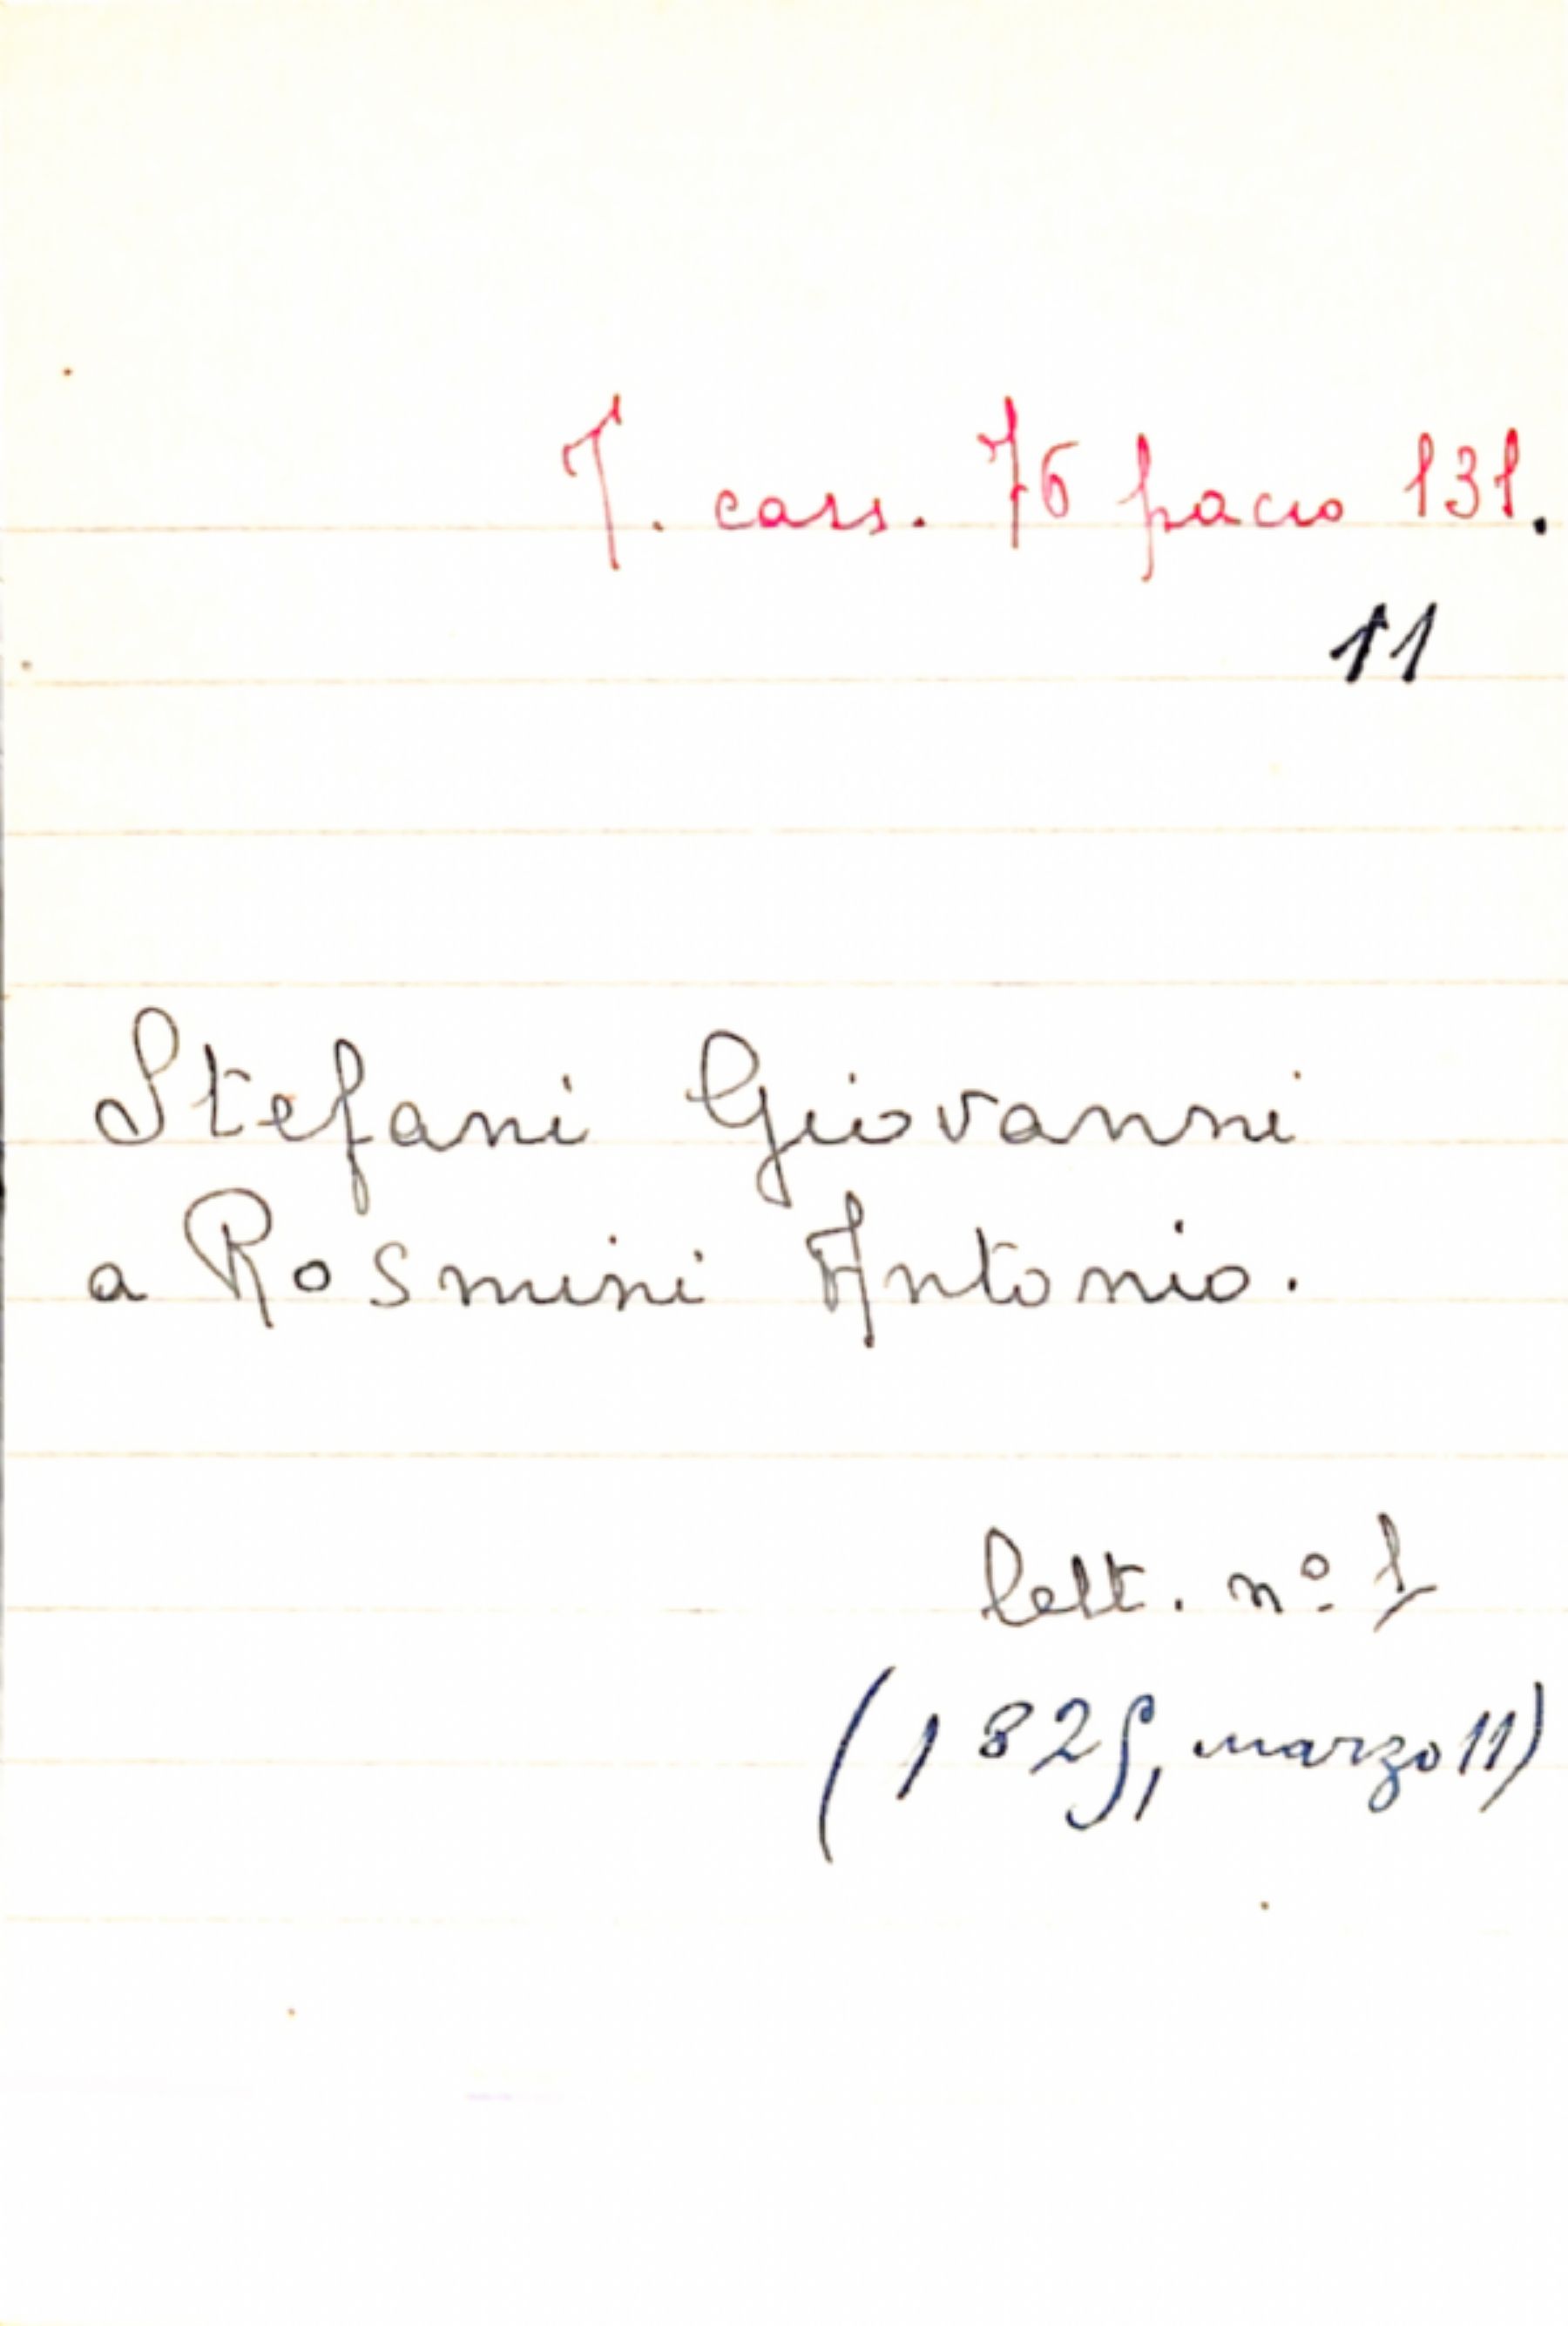 T. cass. 76 pacco 131.
11
Stefani Giovanni
a Rosmini Antonio.
lett. nº 1
(1825, marzo 11)